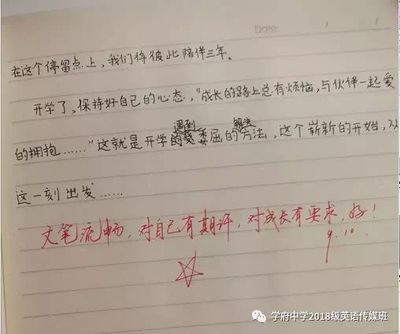 Date:
在这个停留点上，我们将彼此陪伴三年。
开学了，保持好自己的心态，“成长的路上总有烦恼，与伙伴一起爱
遇到 解决
的拥抱……”这就是开学委屈的方法，这个崭新的开始，从
这一刻出发……
文笔流畅，对自己有期许，对成长有要求，好！
9.10.
学府中学2018级英语传媒班